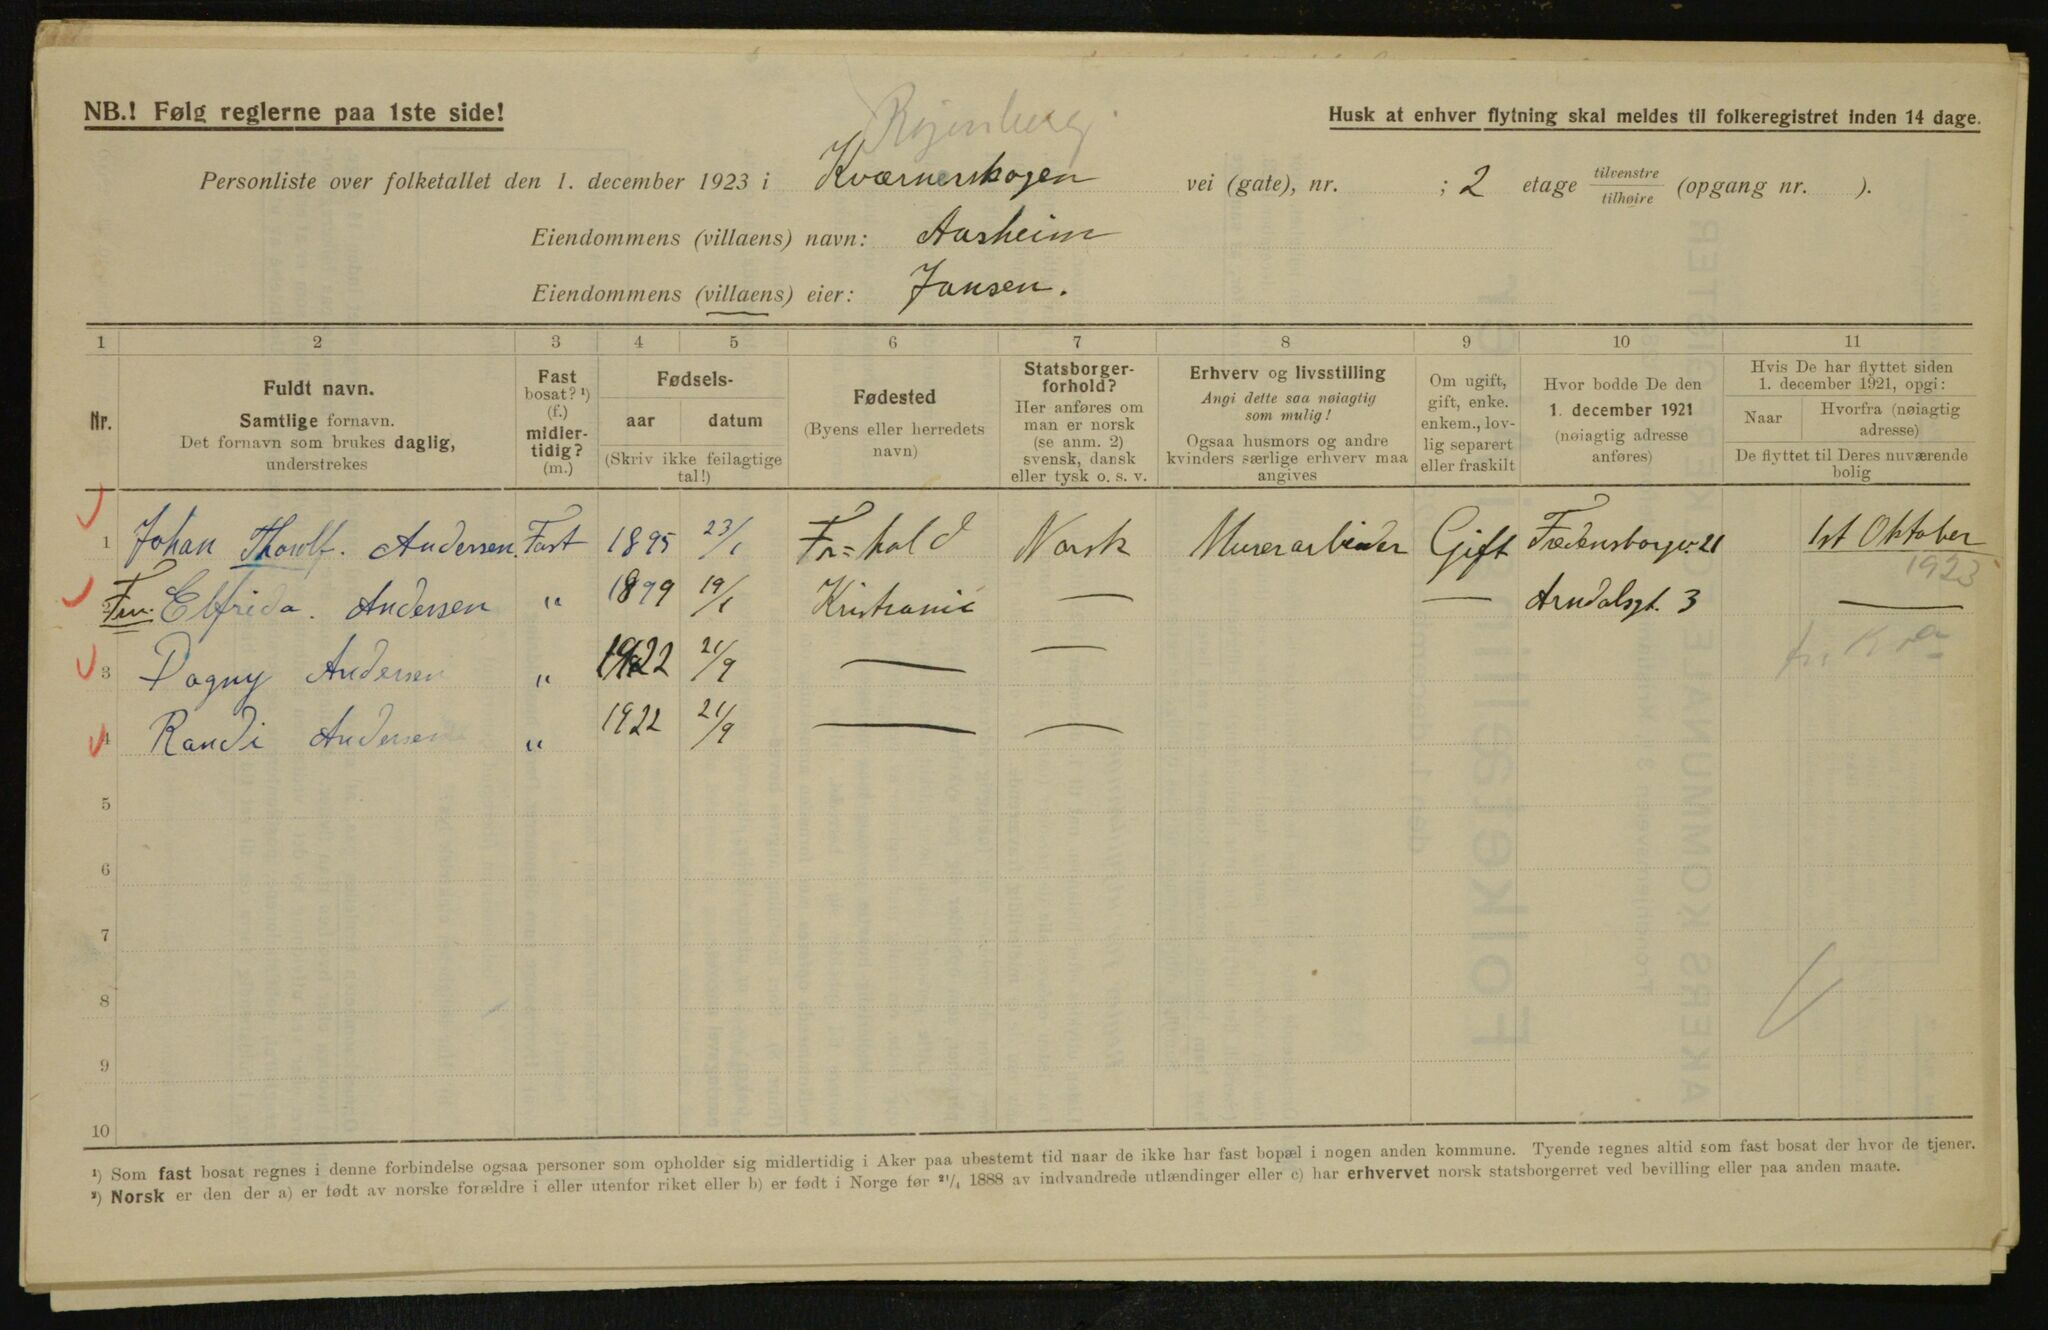 Ryenberg.
NB.! Følg reglerne paa 1ste side!
Husk at enhver flytning skal meldes til folkeregistret inden 14 dage.
Personliste over folketallet den 1. december 1923 i Kværnerskogen vei (gate), nr. ; 2 etage tilvenstre/tilhøire (opgang nr. ).
Eiendommens (villaens) navn: Aasheim
Eiendommens (villaens) eier: Jansen.
1 2 3 4 5 6 7 8 9 10 11
Nr.
Fuldt navn.
Samtlige fornavn.
Det fornavn som brukes daglig,
understrekes
Fast
bosat? ¹)
(f.)
midler-
tidig?
(m.)
Fødsels-
aar datum
(Skriv ikke feilagtige
tal!)
Fødested
(Byens eller herredets
navn)
Statsborger-
forhold?
Her anføres om
man er norsk
(se anm. 2)
svensk, dansk
eller tysk o. s. v.
Erhverv og livsstilling
Angi dette saa nøiagtig
som mulig!
Ogsaa husmors og andre
kvinders særlige erhverv maa
angives
Om ugift,
gift, enke.
enkem., lov-
lig separert
eller fraskilt
Hvor bodde De den
1. december 1921
(nøiagtig adresse
anføres)
Hvis De har flyttet siden
1. december 1921, opgi:
Naar Hvorfra (nøiagtig
adresse)
De flyttet til Deres nuværende
bolig
1 Johan Thorolf. Andersen. Fast 1895 23/1 Fr=hald Norsk Murerarbeider Gift Fredensborgv. 21 1st Oktober
1923
Fru. Elfrida. Andersen " 1899 19/1 Kristiania — — Arndalsgt. 3 —
3 Dagny Andersen " 1922 21/9 — —
4 Randi Andersen " 1922 21/9 — —
5
6
7
8
9
10
¹) Som fast bosat regnes i denne forbindelse ogsaa personer som opholder sig midlertidig i Aker paa ubestemt tid naar de ikke har fast bopæl i nogen anden kommune. Tyende regnes altid som fast bosat der hvor de tjener.
²) Norsk er den der a) er født av norske forældre i eller utenfor riket eller b) er født i Norge før ²¹/₄ 1888 av indvandrede utlændinger eller c) har erhvervet norsk statsborgerret ved bevilling eller paa anden maate.